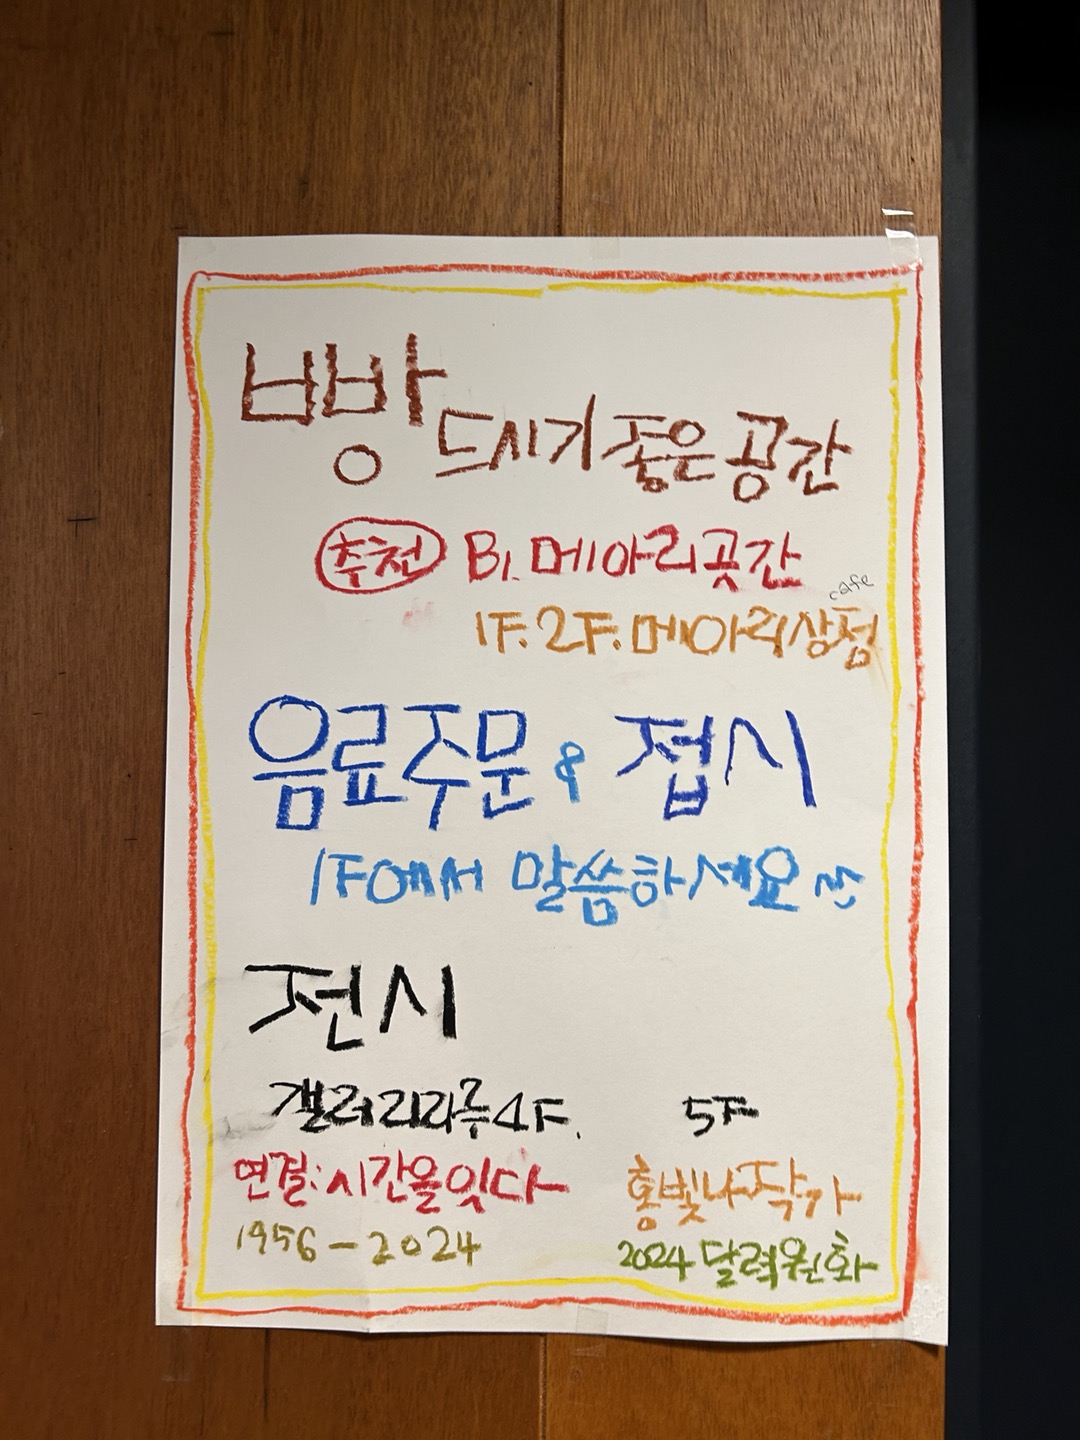 빵 드시기 좋은 공간
추천 B1. 메아리곳간
cafe
1F. 2F. 메아리상점
음료주문 & 접시
1F에서 말씀하세요
전시
갤러리라루 4F. 5F
연결:시간을잇다 홍빛나작가
1956-2024 2024 달력원화